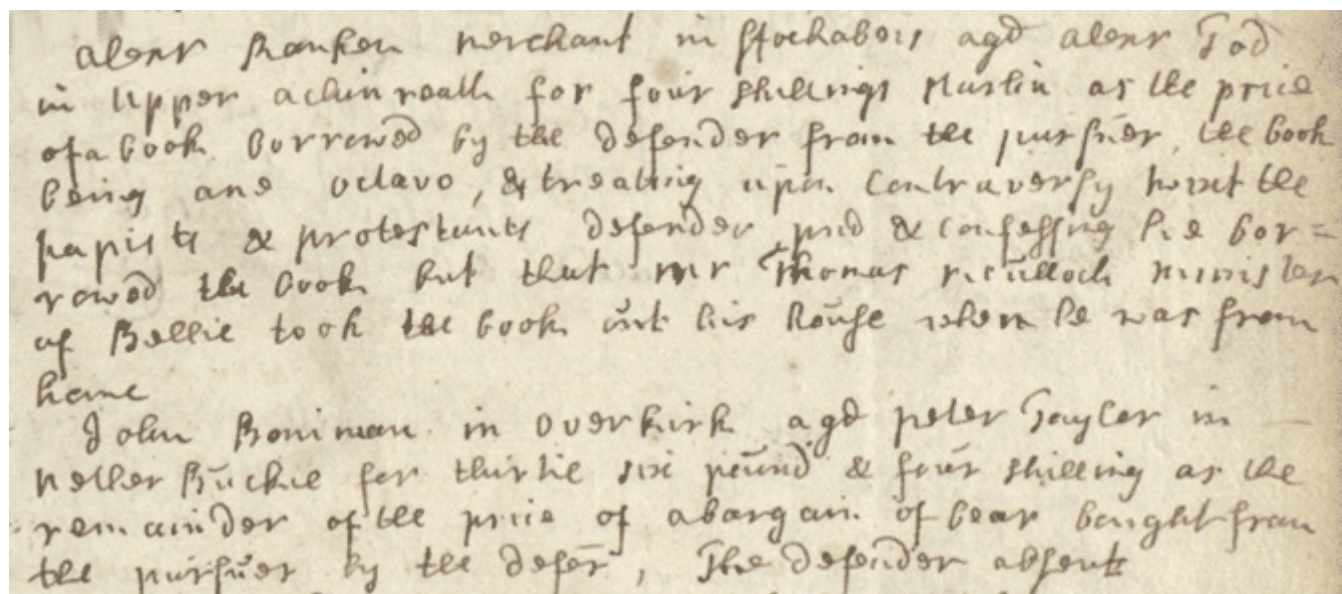 Alexr Ranken merchant in ffochabers agd Alexr Tod
in Upper achinreath for four shillings starlin as the price
of a book borrowed by the defender from the pursuer, the book
being ane octavo, & treating upon Contraversy twixt the
papists & protestants defender pnd & confessing he bor=
rowed the book but that mr Thomas mcculloch minister
of Bellie took the book out his house when he was from
home
John Boniman in Overkirk agd peter Taylor in
nether Buckie for thirtie six pound & four shilling as the
remainder of the price of a bargain of bear bought from
the pursuer by the defer, The defender absent